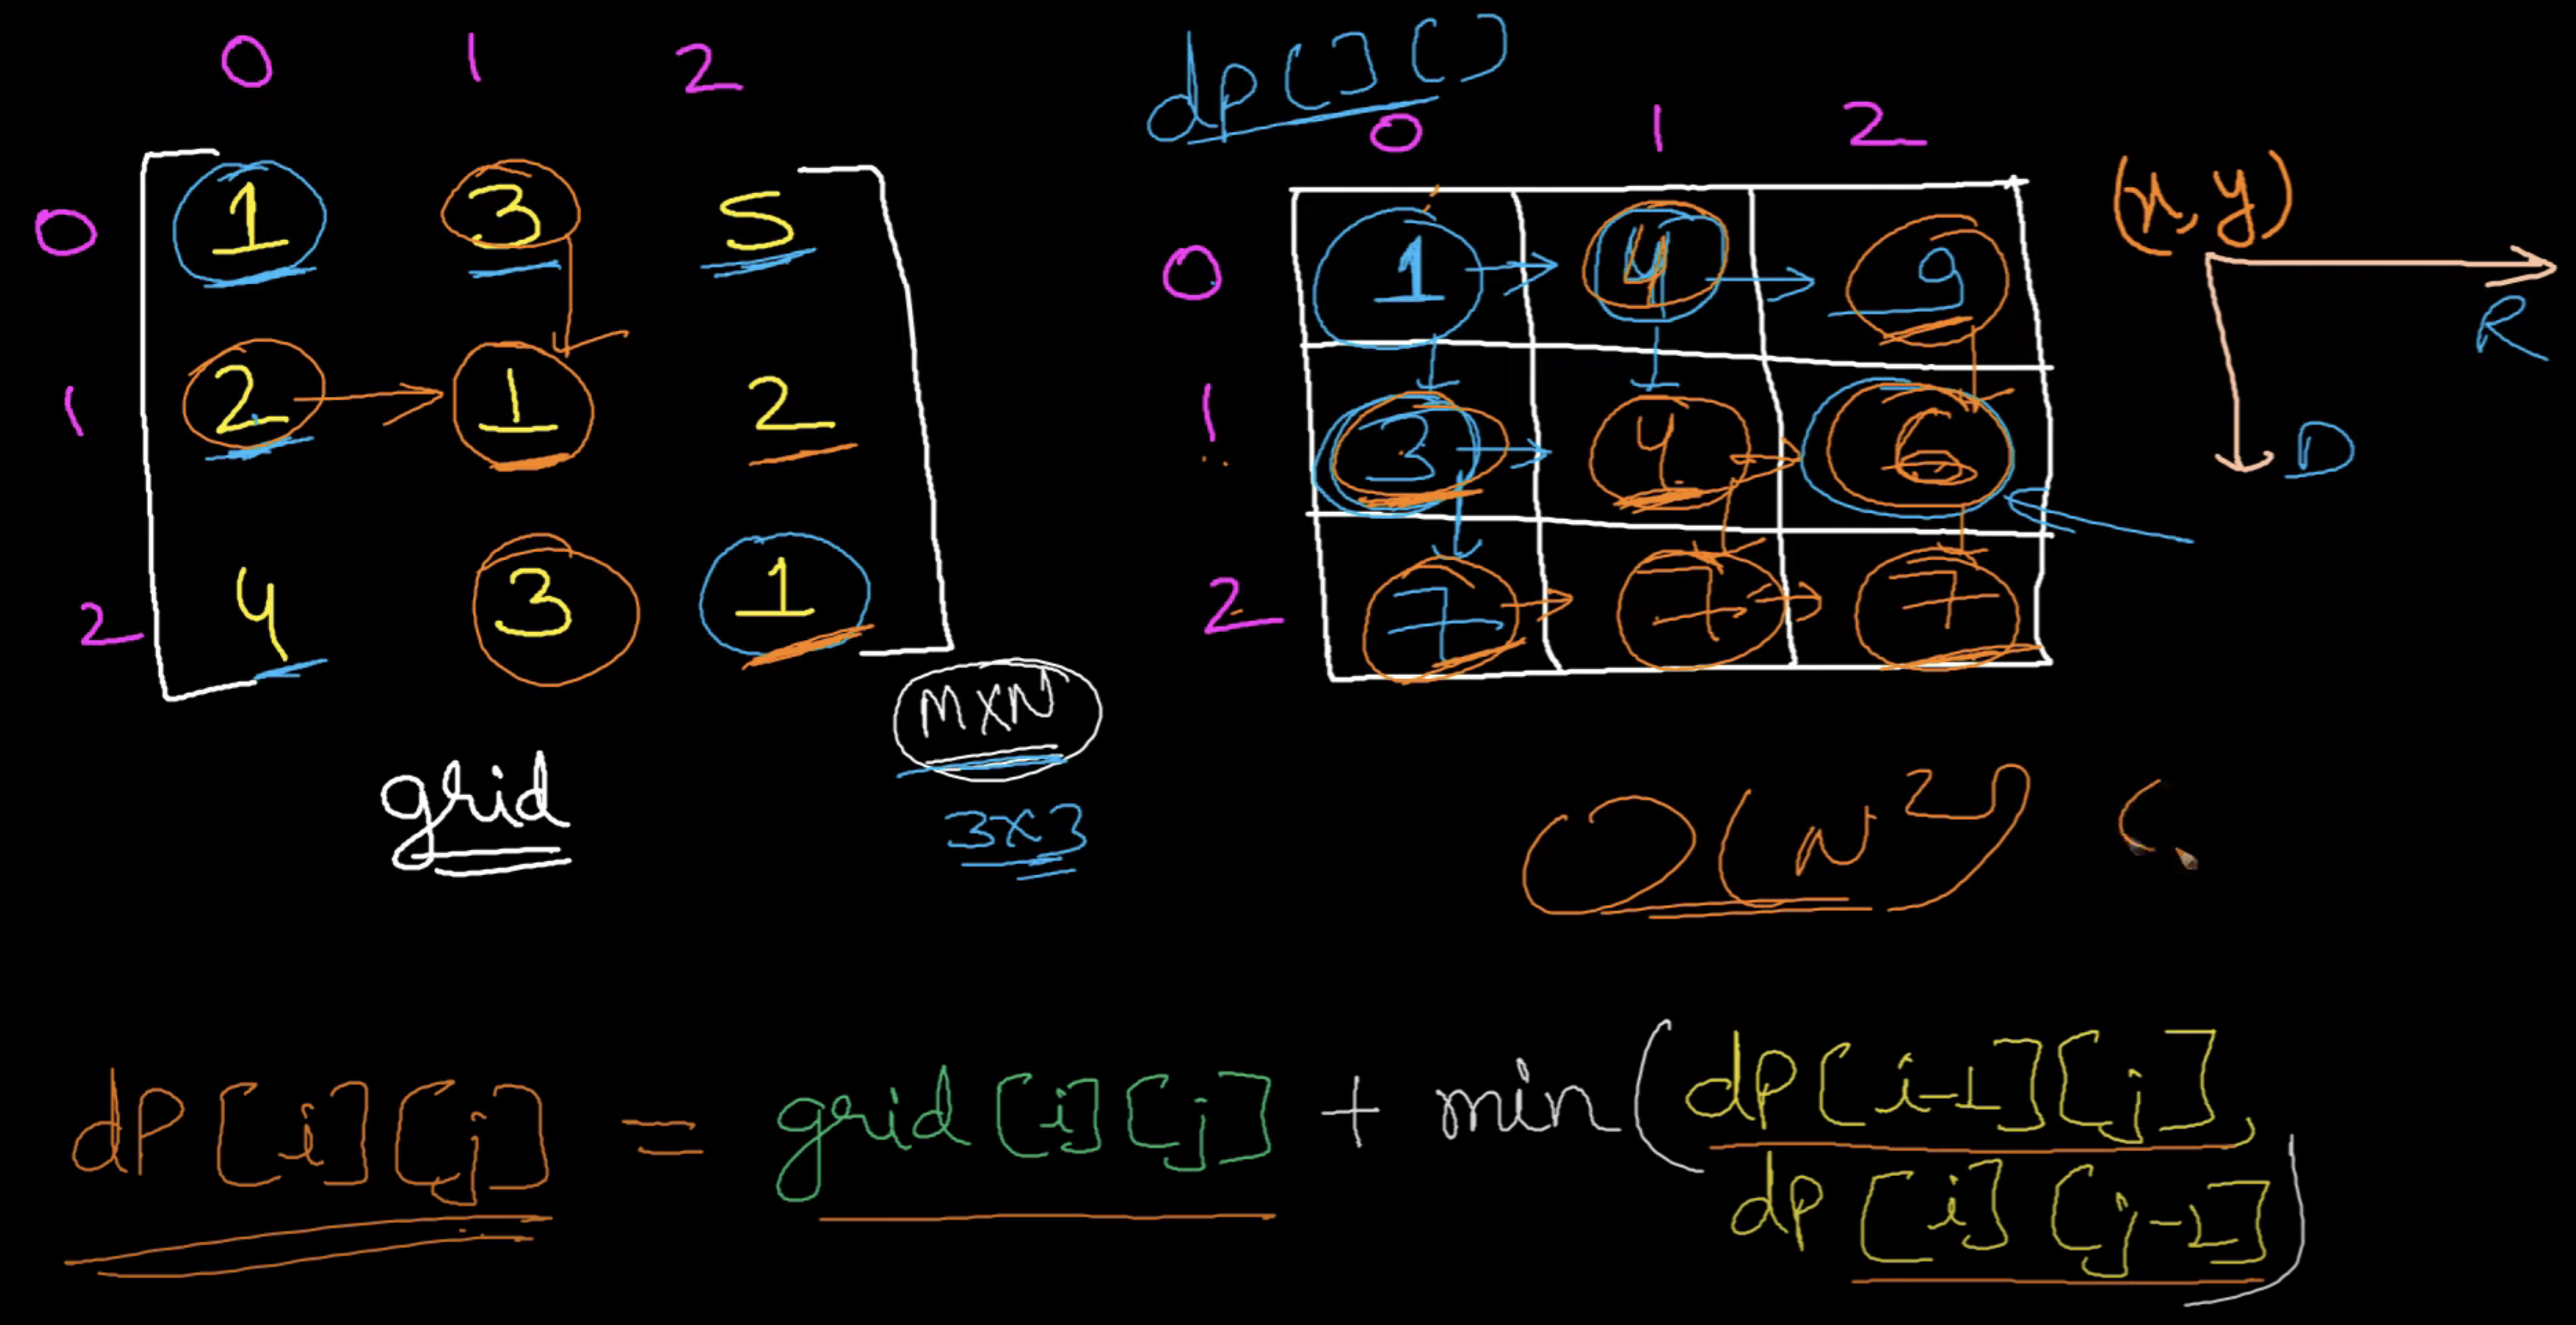 0 1 2
0 1 3 5
1 2 1 2
2 4 3 1
MXN
3x3
grid
dp[][]
0 1 2
0 1 4 9
1 3 4 6
2 7 7 7
(x, y)
R
D
O(N²) (
dP[i][j] = grid[i][j] + min(dP[i-1][j],
dp[i][j-1])